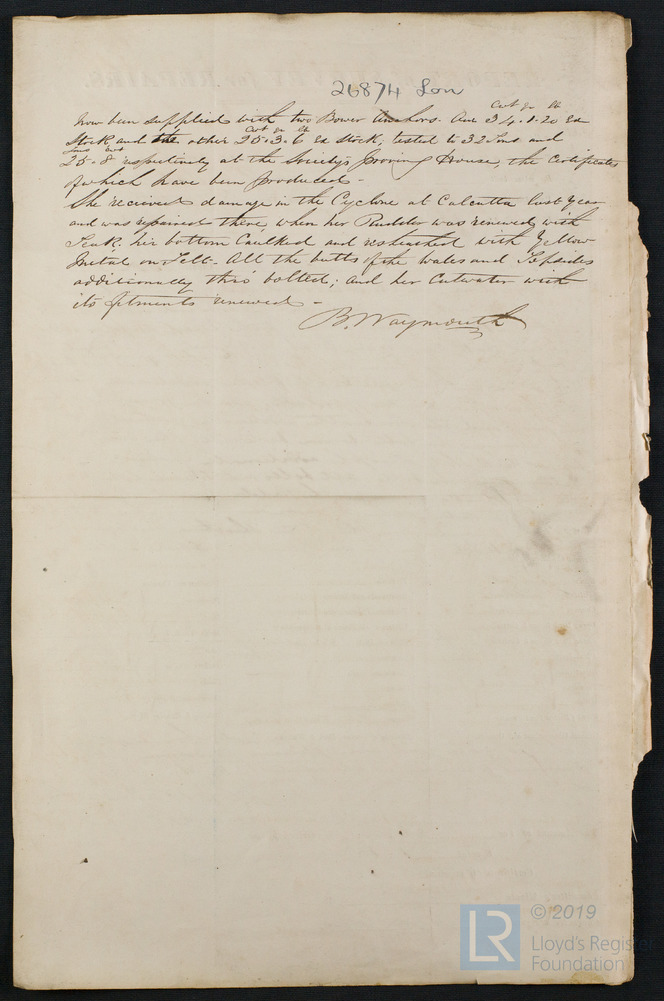 26874 Lon
cwt qr lb
now been supplied with two Bower Anchors. One 34.1.20 Ex
cwt qr lb
Stock and the other 25.3.6 Ex Stock, tested to 32 Tons and
Tons cwt
25.8 respectively at the Society's proving House, the Certificates
of which have been produced -
She recieved damage in the Cyclone at Calcutta last Year
and was repaired there, when her Rudder was renewed with
Teak, her bottom Caulked and resheathed with Yellow
Metal on Felt. All the butts of the Wales and Topsides
additionally thro' bolted; and her Cutwater with
its fitments renewed -
B. Waymouth
LR
© 2019
Lloyd's Register
Foundation